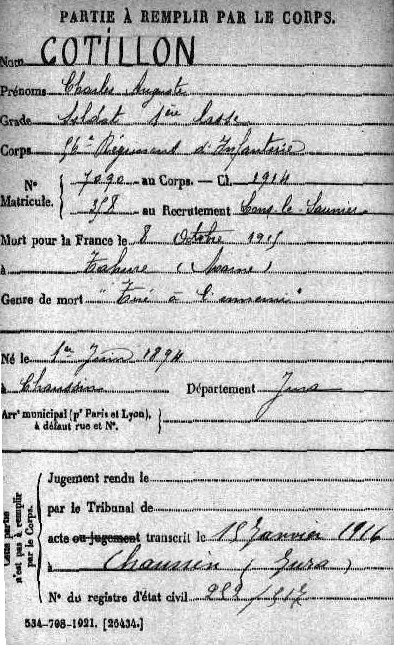 PARTIE À REMPLIR PAR LE CORPS.
Nom COTILLON
Prénoms Charles Auguste
Grade Soldat 1ère classe
Corps 56e Régiment d'Infanterie
N° Matricule. 7090 au Corps. — Cl. 1914
358 au Recrutement Lons-le-Saunier
Mort pour la France le 8 Octobre 1915
à Tahure (Marne)
Genre de mort "Tué à l'ennemi"
Né le 1er Juin 1894
à Chaussin Département Jura
Arrt municipal (pr Paris et Lyon), à défaut rue et N°.
Cette partie n'est pas à remplir par le Corps.
Jugement rendu le
par le Tribunal de
acte ou jugement transcrit le 15 Janvier 1916
à Chaussin (Jura)
N° du registre d'état civil
534-708-1921. [26434.]